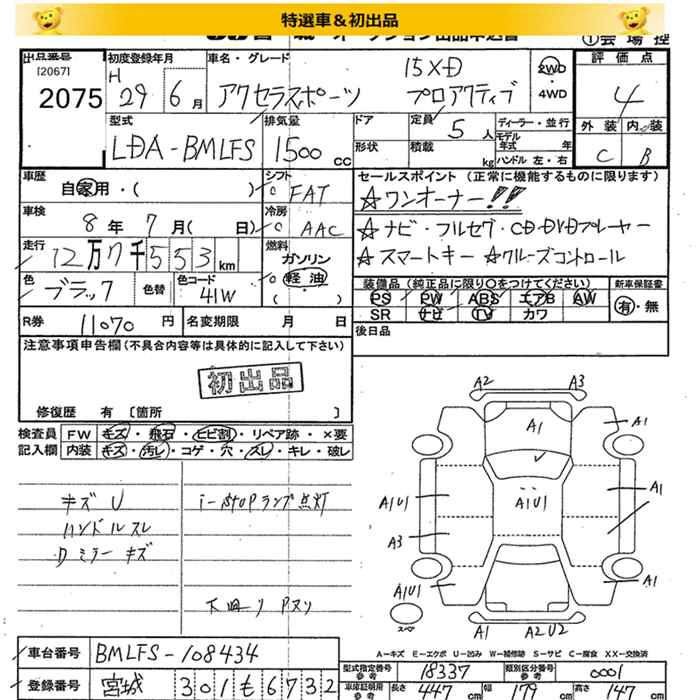 特選車＆初出品
出品番号
[2067]
2075
初度登録年月
H 29年 6月
車名・グレード
アクセラスポーツ
15XD
プロアクティブ
2WD
・4WD
①会場控
評価点
4
外装 内装
C B
型式
LDA-BMLFS
排気量
1500 cc
ドア
形状
定員 5人
積載 kg
ディーラー・並行
モデル年式 年
ハンドル 左・右
車歴
自家用・( )
シフト
FAT
車検
8年 7月( 日)
冷房
AAC
走行
12万7千553km
燃料
ガソリン
軽油
( )
色
ブラック
色替
色コード
41W
R券 11070円
名変期限 月 日
セールスポイント (正常に機能するものに限ります)
☆ワンオーナー!!
☆ナビ・フルセグ・CD・DVDプレーヤー
☆スマートキー ☆クルーズコントロール
装備品 (純正品に限り○をつけてください)
新車保証書
PS PW ABS エアB AW
SR ナビ TV カワ
有・無
後日品
注意事項申告欄 (不具合内容等は具体的に記入して下さい)
初出品
修復歴 有 〔箇所 〕
検査員 FW キズ・飛石・ヒビ割・リペア跡・×要
記入欄 内装 キズ・汚レ・コゲ・穴・スレ・キレ・破レ
キズU
i-STOPランプ点灯
ハンドルスレ
Dミラーキズ
下廻りPヌリ
A2 A3
A1 A1
A1U1 A1U1 A1
A3
A1U1 A1
スペア
A1 A2U2
A-キズ E-エクボ U-凹み W-補修跡 S-サビ C-腐食 XX-交換済
車台番号 BMLFS-108434
登録番号 宮城 301も6732
型式指定番号 参考 18337
類別区分番号 参考 0001
車庫証明用 参考
長さ 447cm
幅 179cm
高さ 147cm